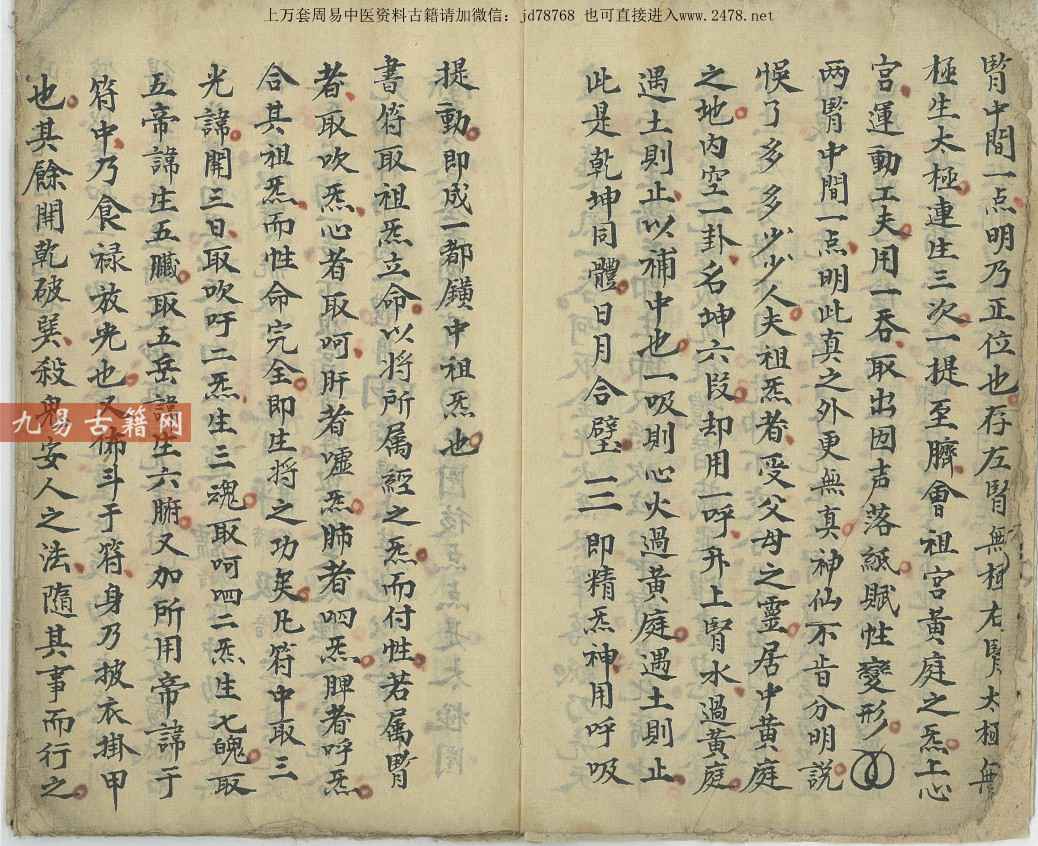 上万套周易中医资料古籍请加微信：jd78768 也可直接进入www.2478.net
腎中間一点明乃正位也存左腎無極右腎太極無
極生太極連生三次一提至臍會祖宮黃庭之炁上心
宮運動工夫用一吞取出因声落紙賦性變形
两腎中間一点明此真之外更無真神仙不肯分明說
悞了多多少少人夫祖炁者受父母之靈居中黃庭
之地内空一卦名坤六段却用一呼升上腎水過黃庭
遇土則止以補中也一吸則心火過黃庭遇土則止
此是乾坤同體日月合璧三即精炁神用呼吸
提動即成一都鐄中祖炁也
書符取祖炁立命以將所属經之炁而付性若属腎
者取吹炁心者取呵肝者噓炁肺者呬炁脾者呼炁
合其祖炁而性命完全即生將之功矣凡符中取三
光諱開三日取吹吁二炁生三魂取呵呬二炁生七魄取
五帝諱生五臟取五岳諱生六腑又加所用帝諱于
符中乃食禄放光也又佈斗于符身乃披衣掛甲
也其餘開乾破巽殺鬼安人之法隨其事而行之
九易古籍网